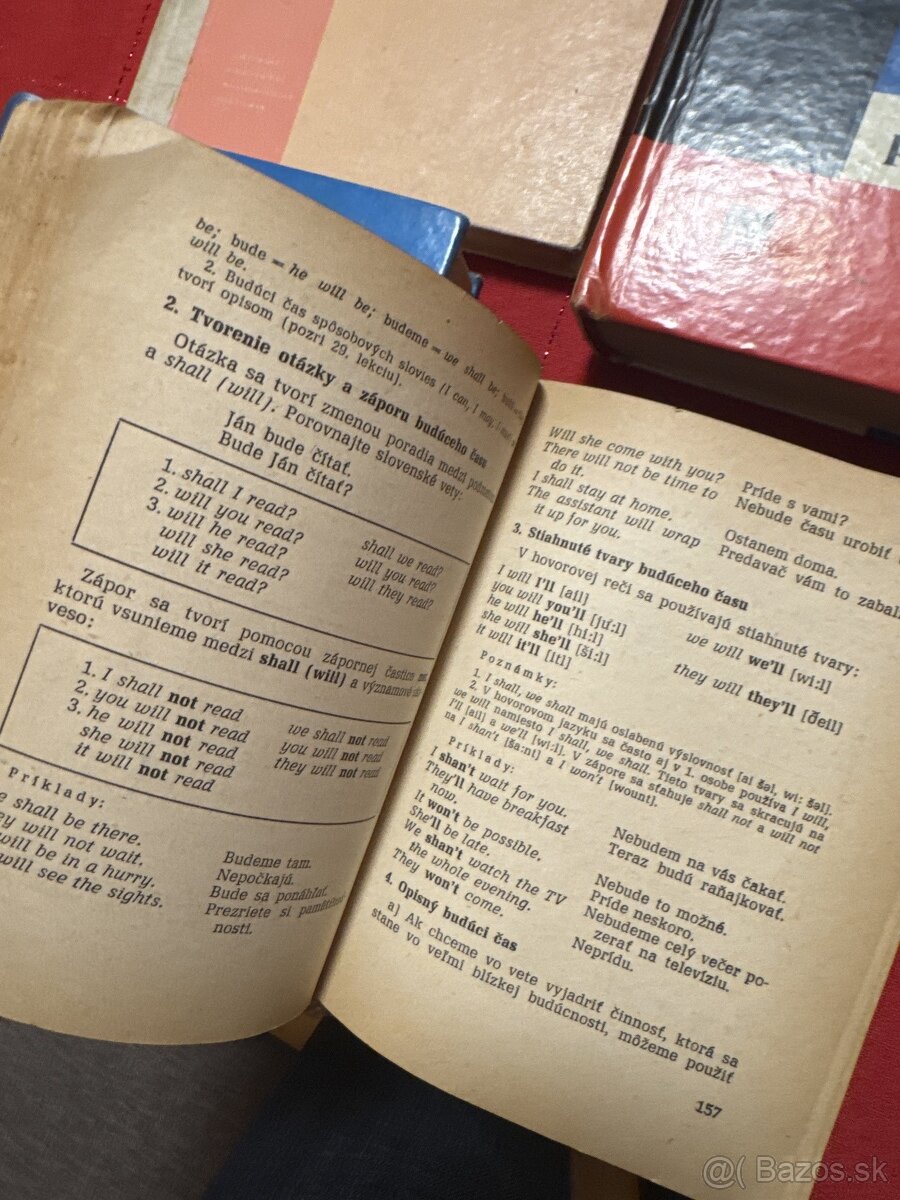 be; bude = he will be; budeme = we shall be;
will be.
2. Budúci čas spôsobových slovies (I can, I may, I
tvorí opisom (pozri 29. lekciu).
2. Tvorenie otázky a záporu budúceho času
Otázka sa tvorí zmenou poradia medzi
a shall (will). Porovnajte slovenské vety:
Ján bude čítať.
Bude Ján čítať?
1. shall I read? shall we read?
2. will you read? will you read?
3. will he read? will they read?
will she read?
will it read?
Zápor sa tvorí pomocou zápornej častice
ktorú vsunieme medzi shall (will) a významové
veso:
1. I shall not read we shall not read
2. you will not read you will not read
3. he will not read they will not read
she will not read
it will not read
Príklady:
shall be there. Budeme tam.
will not wait. Nepočkajú.
will be in a hurry. Bude sa ponáhľať.
will see the sights. Prezriete si
nosti.
Will she come with you? Príde s vami?
There will not be time to Nebude času urobiť
do it.
I shall stay at home. Ostanem doma.
The assistant will wrap Predavač vám to zabalí
it up for you.
3. Stiahnuté tvary budúceho času
V hovorovej reči sa používajú stiahnuté tvary:
I will I'll [ail] we will we'll [wi:l]
you will you'll [ju:l]
he will he'll [hi:l] they will they'll [ðeil]
she will she'll [ši:l]
it will it'll [itl]
Poznámky:
1. I shall, we shall majú oslabenú výslovnosť [ai šəl, wi: šəl].
2. V hovorovom jazyku sa často aj v 1. osobe používa I will,
we will namiesto I shall, we shall. Tieto tvary sa skracujú na
I'll [ail] a we'll [wi:l]. V zápore sa sťahuje shall not a will not
na I shan't [ša:nt] a I won't [wount].
Príklady:
I shan't wait for you. Nebudem na vás čakať.
They'll have breakfast Teraz budú raňajkovať.
now.
It won't be possible. Nebude to možné.
She'll be late. Príde neskoro.
We shan't watch the TV Nebudeme celý večer po-
the whole evening. zerať na televíziu.
They won't come. Neprídu.
4. Opisný budúci čas
a) Ak chceme vo vete vyjadriť činnosť, ktorá sa
stane vo veľmi blízkej budúcnosti, môžeme použiť
157
@( Bazos.sk